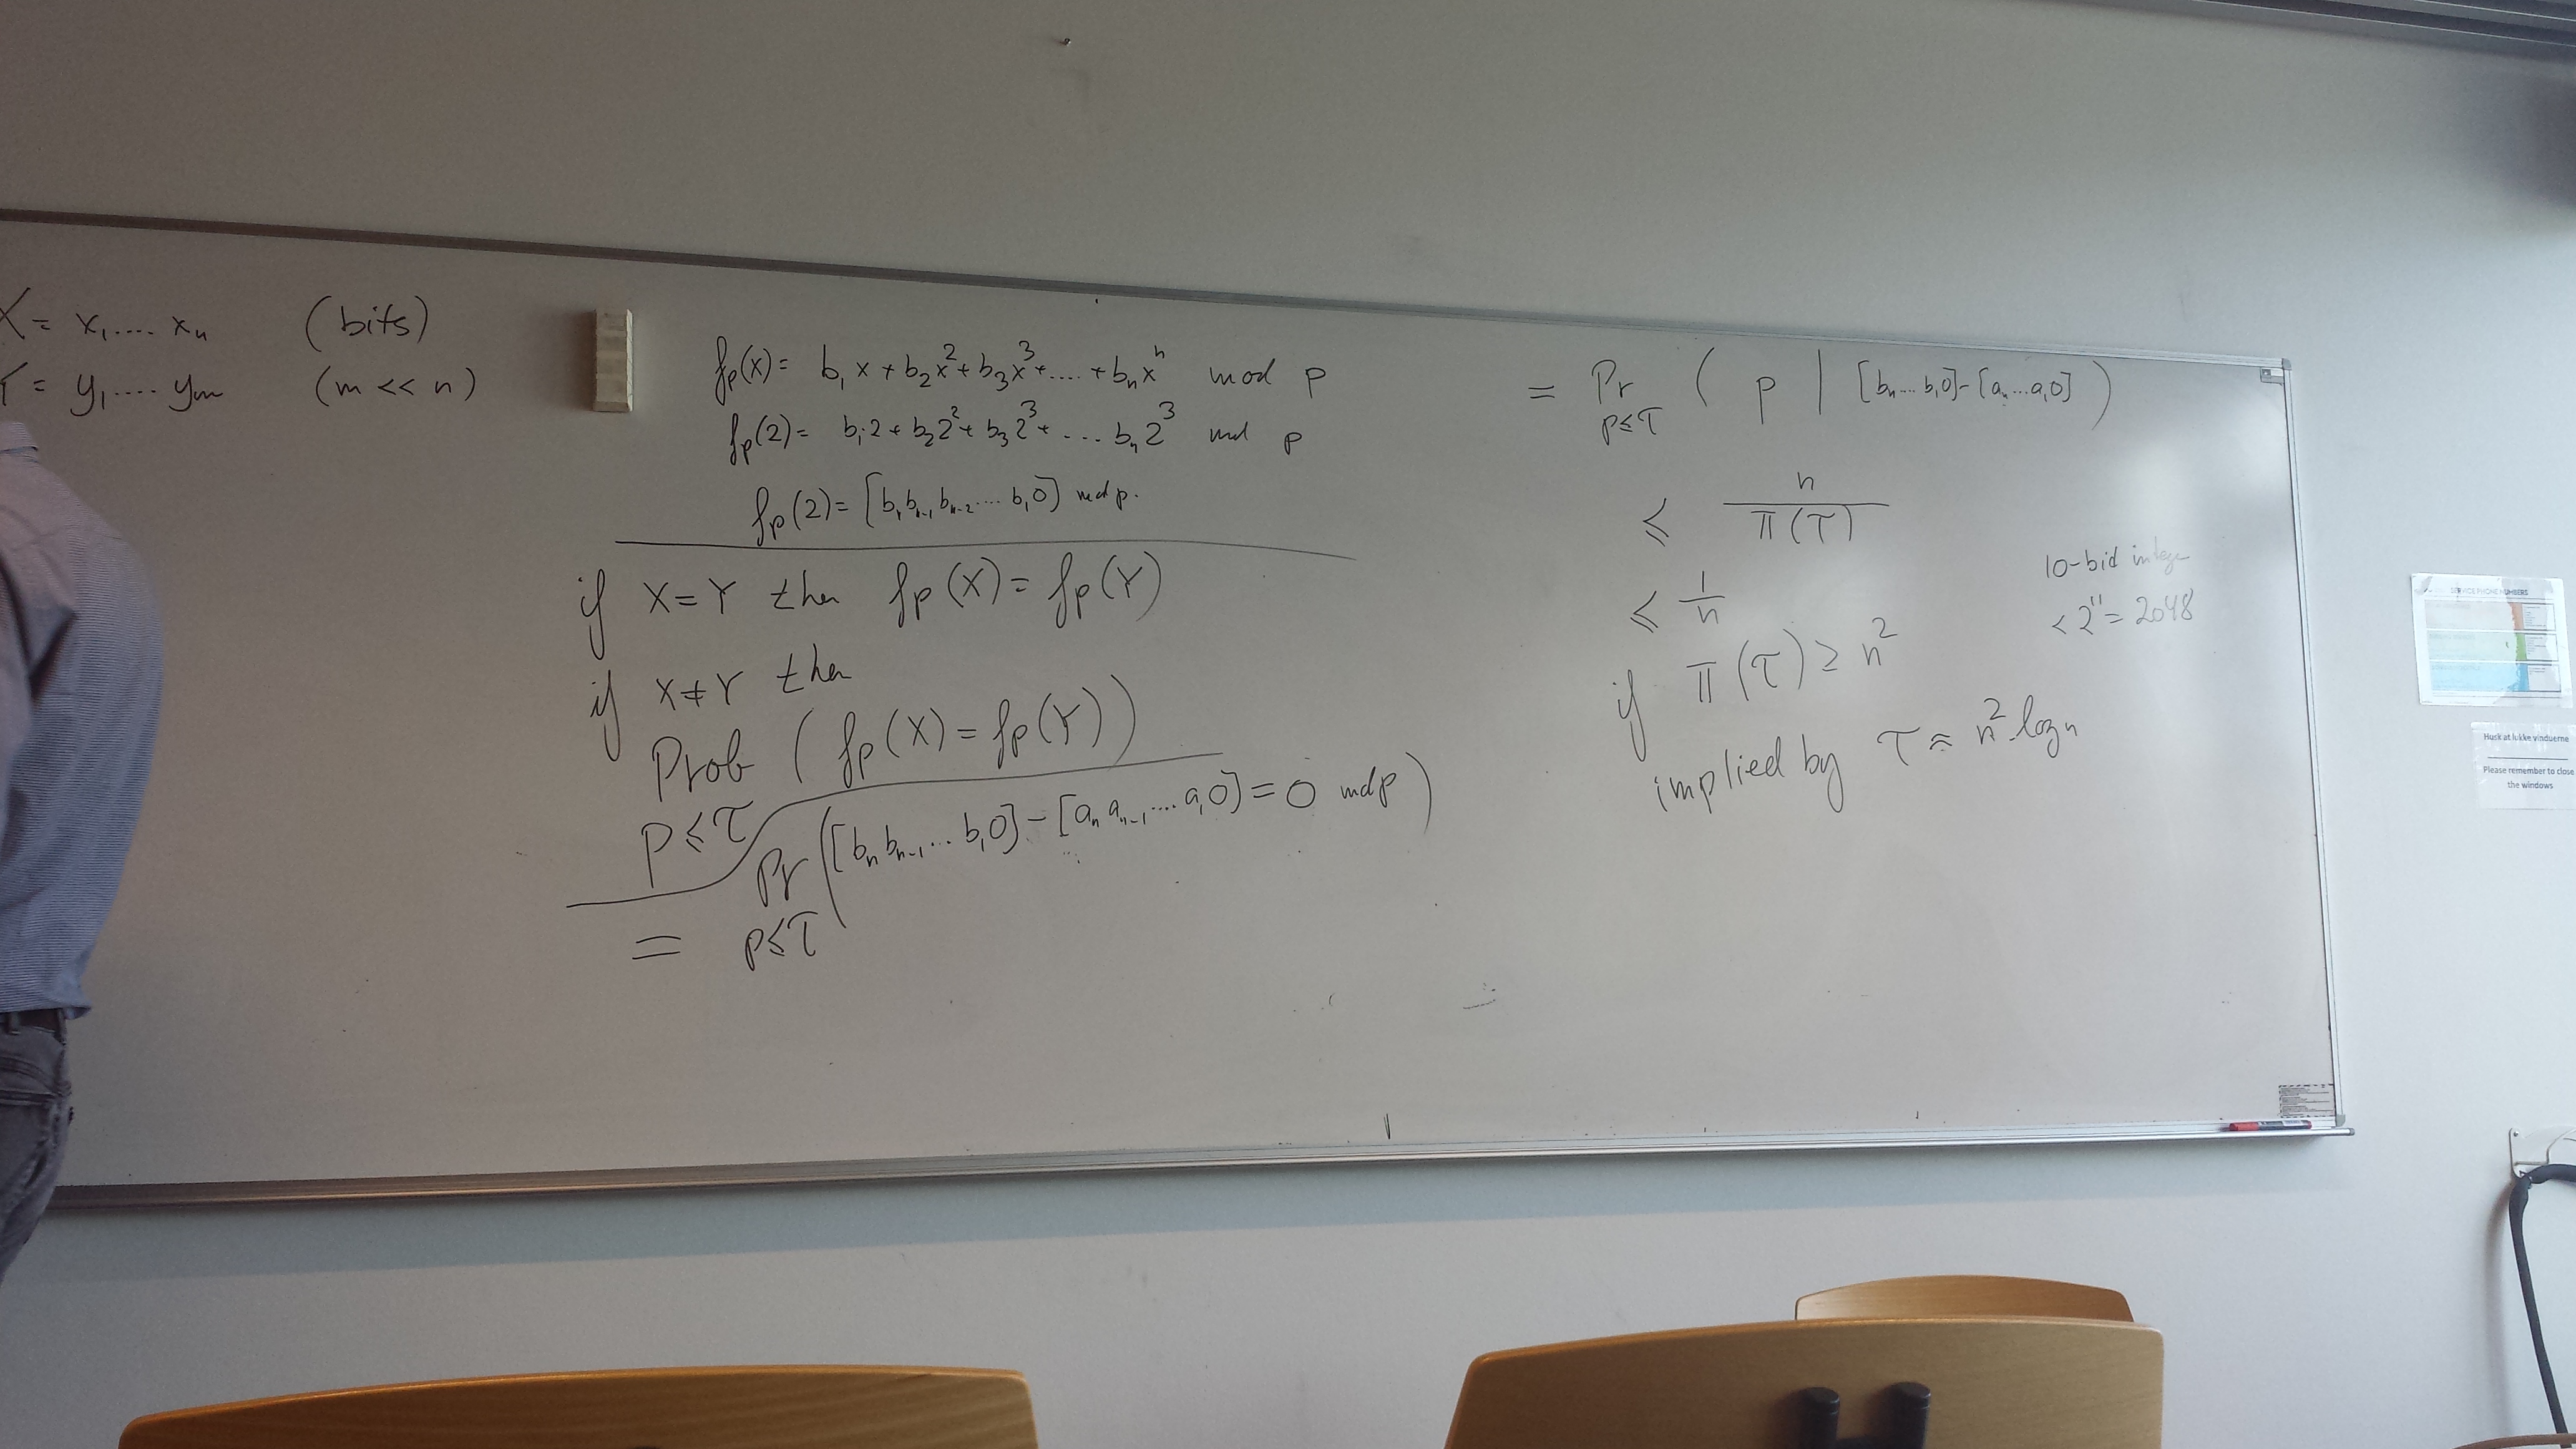 X = x₁.... xₙ (bits)
Y = y₁.... yₘ (m << n)
fₚ(x) = b₁ x + b₂x² + b₃x³ + .... + bₙxⁿ mod p
fₚ(2) = b₁2 + b₂2² + b₃2³ + .... bₙ2³ md p
fₚ(2) = [bₙbₙ₋₁bₙ₋₂.... b₁0] md p.
if X = Y then fₚ(X) = fₚ(Y)
if X ≠ Y then
Prob ( fₚ(X) = fₚ(Y) )
p ≤ τ
= Pr ( [bₙ bₙ₋₁... b₁0] - [aₙ aₙ₋₁.... a₁0] = 0 md p )
p ≤ τ
= Pr ( p | [bₙ....b₁0] - [aₙ...a₁0] )
p ≤ τ
≤ n / π(τ)
≤ 1 / n
if π(τ) ≥ n²
implied by τ ≈ n² log n
10-bid intege
< 2¹¹ = 2048
SERVICE PHONE NUMBERS
Husk at lukke vinduerne
Please remember to close
the windows